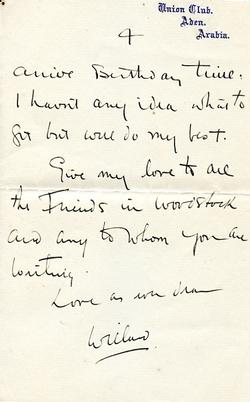 Union Club.
Aden.
Arabia.
4
arrive Birthday time.
I havn't any idea what to
get but will do my best.
Give my love to all
the Friends in Woodstock
and any to whom you are
writing.
Love as ever dear